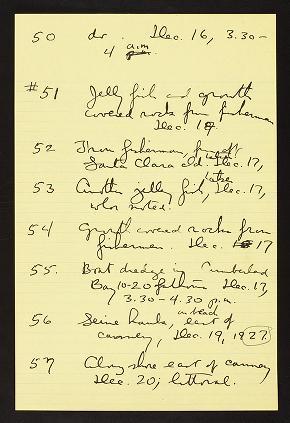 50 do. Dec. 16, 3.30-
4 a.m. p.m.
#51 Jelly fish and growth
covered rocks from fisherman
Dec. 17.
52 From fisherman, from off
Santa Clara Id. Dec. 17,
53 Another jelly fish, Dec. 17,
color noted.
54 Growth covered rocks from
fisherman. Dec. 17
55. Boat dredge in Cumberland
Bay 10-20 fathoms Dec. 17,
3.30 - 4.30 p.m.
56 Seine hauls, on beach east of
cannery, Dec. 19, 1927.
57 Along shore east of cannery
Dec. 20; littoral.